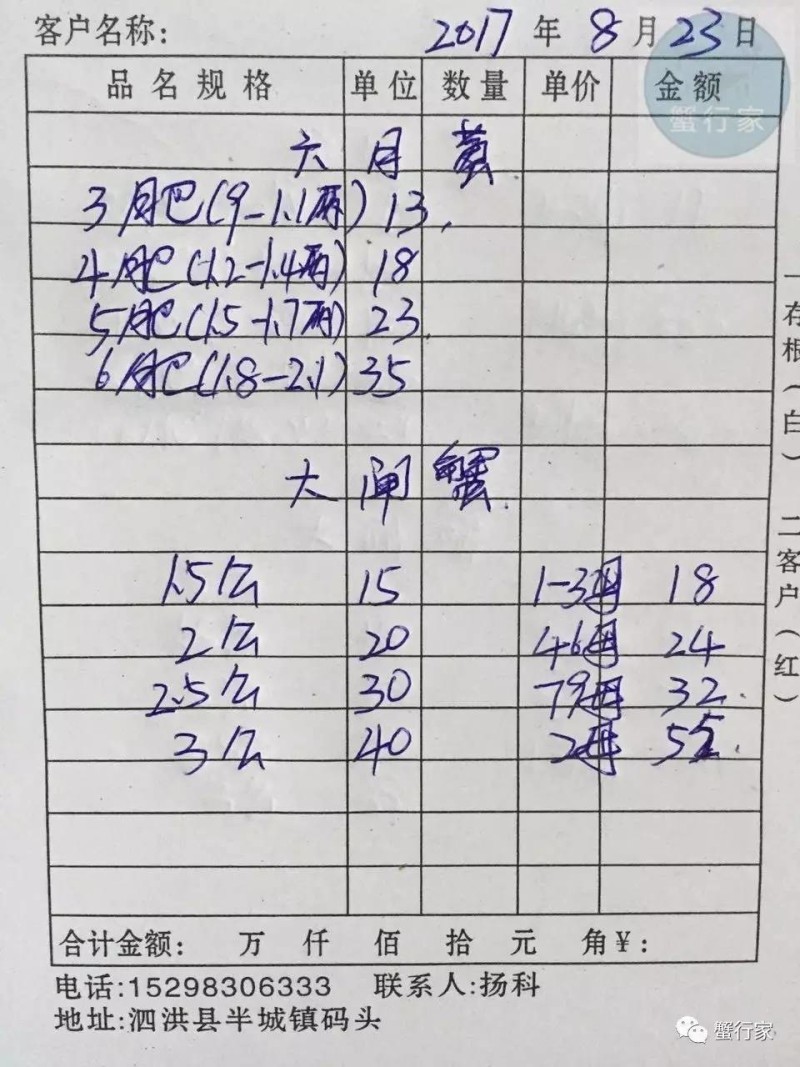 客户名称: 2017 年 8 月 23 日
品名规格 单位 数量 单价 金额
蟹行家
六 月 黄
3月肥(9-1.1两) 13.
4月肥(1.2-1.4两) 18
5月肥(1.5-1.7两) 23.
6月肥(1.8-2.1) 35
大 闸 蟹.
1.5公 15 1-3母 18
2公 20 4-6母 24
2.5公 30 79母 32.
3公 40 2母
合计金额: 万 仟 佰 拾 元 角 ¥:
电话:15298306333 联系人:扬科
地址:泗洪县半城镇码头
一存根(白)
二客户(红)
蟹行家